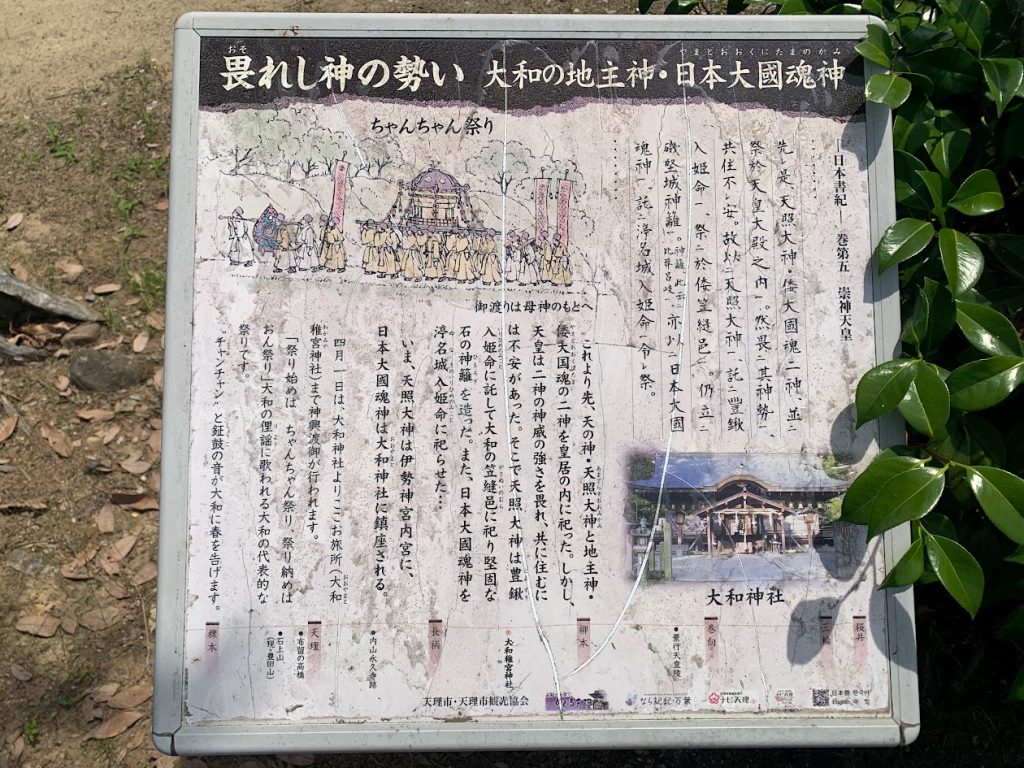 畏れし神の勢い 大和の地主神・日本大國魂神
おそ
やまとおおくにたまのかみ
ちゃんちゃん祭り
御渡りは母神のもとへ
―日本書紀― 巻第五 崇神天皇
……
先レ是、天照大神・倭大國魂二神、並二
祭於天皇大殿之内一。然畏二其神勢一、
共住不レ安。故以二天照大神一、託二豐鍬
入姫命一、祭二於倭笠縫邑一。仍立二
磯堅城神籬一。神籬、此云二比莽呂岐一 亦以二日本大國
魂神一、託二渟名城入姫命一令レ祭。
……
これより先、天の神・天照大神と地主神・
倭大国魂の二神を皇居の内に祀った。しかし、
天皇は二神の神威の強さを畏れ、共に住むに
は不安があった。そこで天照大神は豊鍬
入姫命に託して大和の笠縫邑に祀り堅固な
石の神籬を造った。また、日本大國魂神を
渟名城入姫命に祀らせた…
いま、天照大神は伊勢神宮内宮に、
日本大國魂神は大和神社に鎮座される。
四月一日は、大和神社よりここお旅所(大和
稚宮神社)まで神輿渡御が行われます。
「祭り始めは ちゃんちゃん祭り、祭り納めは
おん祭り」大和の俚謡に歌われる大和の代表的な
祭りです。
“チャンチャン”と鉦鼓の音が大和に春を告げます。
大和神社
桜井
三輪
巻向
●景行天皇陵
柳本
●大和稚宮神社
長柄
●内山永久寺跡
天理
●布留の高橋
●石上山
(現・豊田山)
櫟本
天理市・天理市観光協会
なら記紀・万葉
ナビ天理
日本語 한국어
English 中文